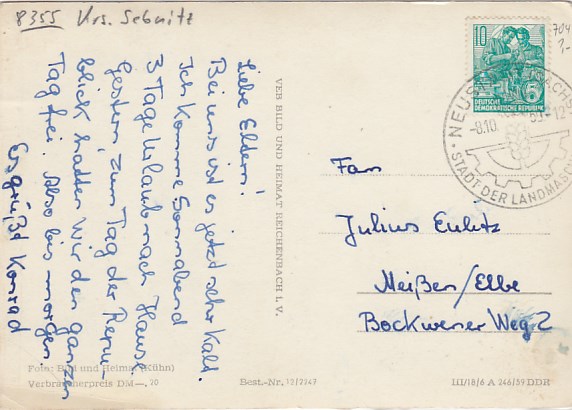 8355 Krs. Sebnitz
Liebe Eltern!
Bei uns ist es jetzt sehr kalt.
Ich komme Sonnabend
3 Tage Urlaub nach Haus.
Gestern, zum Tag der Repu-
blick hatten wir den ganzen
Tag frei. Also bis morgen.
Es grüßt Konrad
VEB BILD UND HEIMAT REICHENBACH I. V.
704
10
DEUTSCHE
DEMOKRATISCHE REPUBLIK
-8.10. 59.-12
STADT DER LANDMASCH
Fam
Julius Eulitz
Meißen/Elbe
Bockwener Weg 2
Foto: Bild und Heimat (Kühn)
Verbraucherpreis DM —, 20
Best.-Nr. 13/2247
III/18/6 A 246/59 DDR